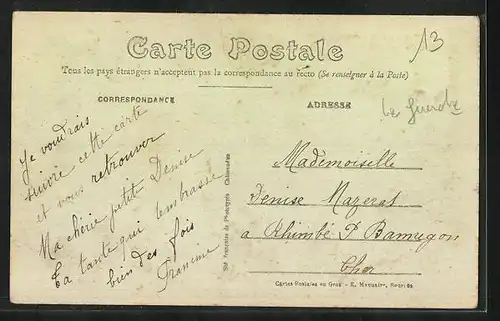 Carte Postale
13
Tous les pays étrangers n'acceptent pas la correspondance au recto (Se renseigner à la Poste)
CORRESPONDANCE
ADRESSE
La Guerche
Je voudrais
suivre cette carte
et vous retrouver
Ma chérie petit Denise
Ta tante qui t'embrasse
bien des fois
Francine
Sté Française de Phototypie Châteaudun
Mademoiselle
Denise Mazerat
a Rhimbé P Bannegon
Cher
Cartes Postales en Gros - E. Maquaire,